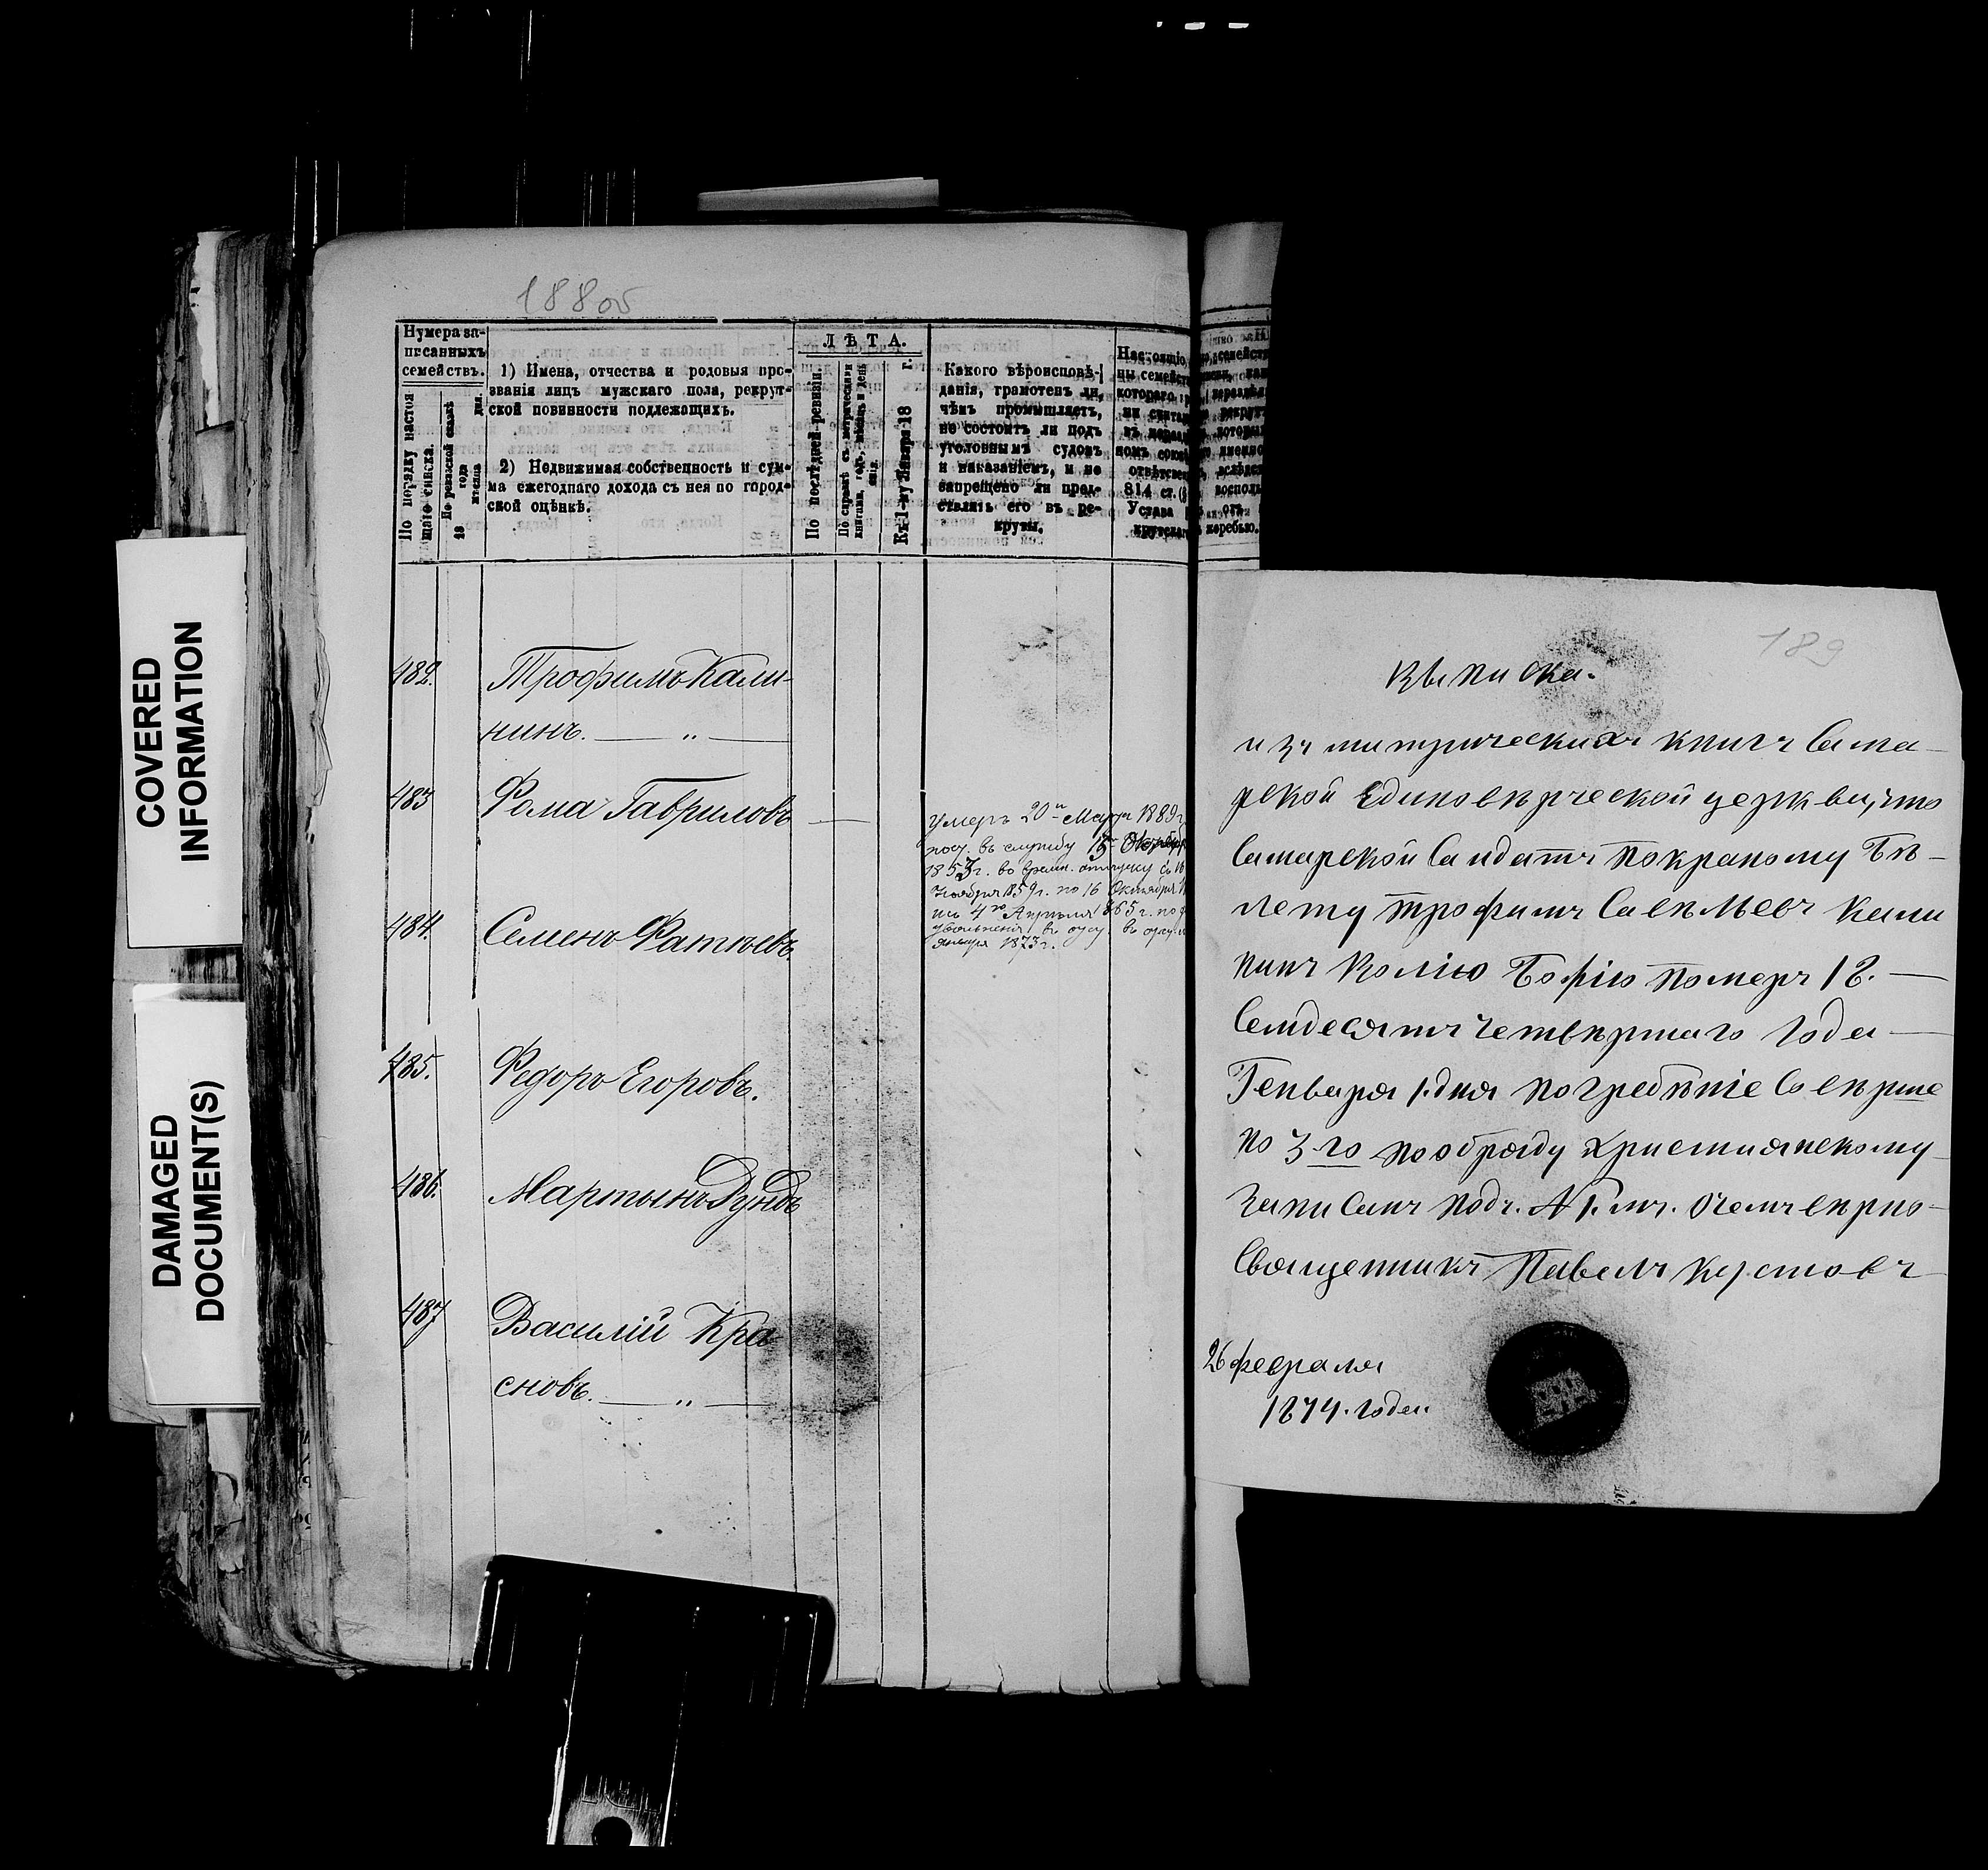 COVERED
INFORMATION
DAMAGED
DOCUMENT(S)
188об
Нумера за-
писанныхъ
семействъ.
По порядку настоя
щаго списка.
По ревизской сказкѣ
18 года
1) Имена, отчества и родовыя про-
званія лицъ мужскаго пола, рекрут-
ской повинности подлежащихъ.
2) Недвижимая собственность и сум-
ма ежегоднаго дохода съ нея по город-
ской оцѣнкѣ.
ЛѢТА.
По послѣдней ревизіи.
По справкѣ съ метрическими
книгами, годъ, мѣсяцъ и день
Къ 1-му Января 18 г.
Какого вѣроисповѣ-
данія, грамотенъ ли,
чѣмъ промышляетъ,
не состоитъ ли подъ
уголовнымъ судомъ
и наказаніемъ, и не
запрещено ли пред-
ставлять его въ ре-
круты.
814 ст.
Устава
482. Трофимъ Кали-
нинъ. — " —
483 Фома Гавриловъ —
умеръ 20 Марта 1889 г
пост. въ службу 15 Октябр
1853 г. во времн. отпуску съ 16
Ноября 1859 г. по 16 Октября
4го Апрѣля 1865 г.
Января 1873 г.
484. Семенъ Фатѣевъ.
485. Федоръ Егоровъ.
486. Мартынъ Дундъ
487 Василій Кра
сновъ. — " —
189
Выписка.
изъ митрическихъ книгъ Сама-
рской Единовѣрческой церкви, что
Самарской Салдатъ покраному Бѣ-
лету Трофимъ Савѣльевъ Кали
нинъ Волію Божію померъ 18.—
Семдесятъ четвѣртаго Года—
Генваря 1. дня погребѣніе Совѣрше
но 3-го пообряду християнскому
Записанъ подъ. № 1.мъ. очемъ вѣрно-
Священникъ Павелъ Кустовъ
26 февраля
1874. Года